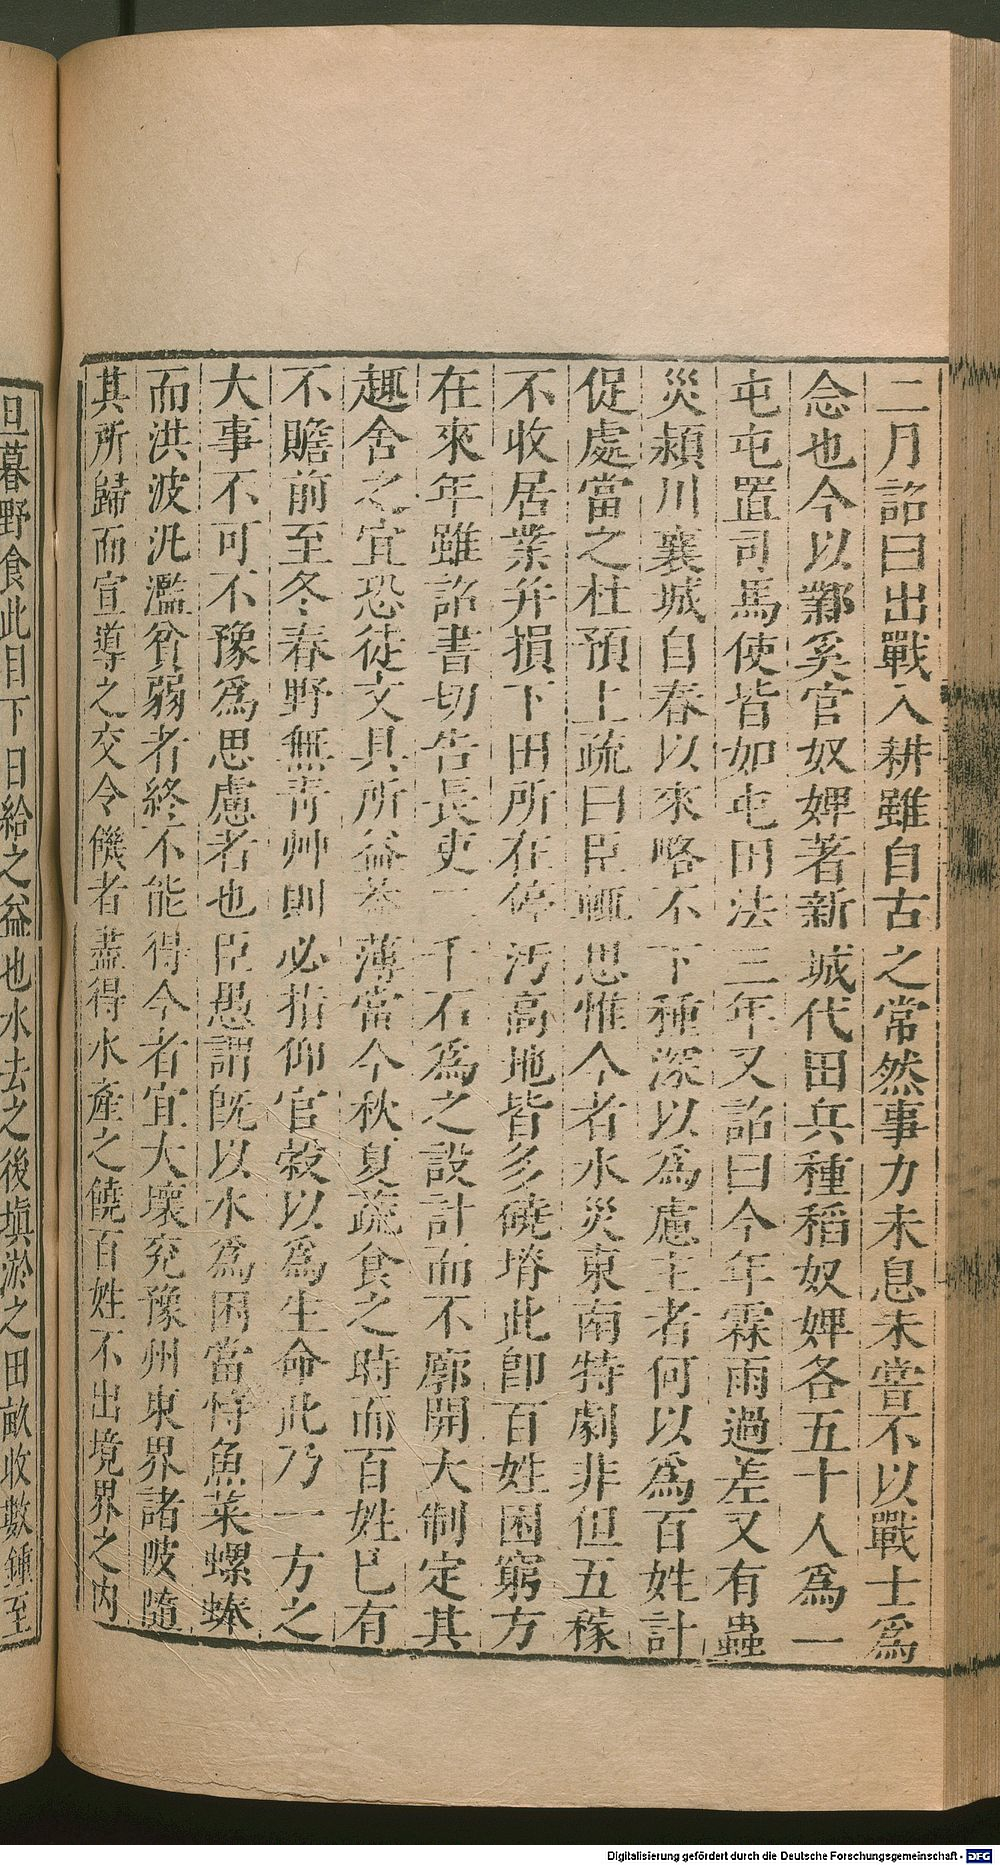 二月詔曰出戰入耕雖自古之常然事力未息未嘗不以戰士爲
念也今以鄴奚官奴婢著新城代田兵種稻奴婢各五十人爲一
屯屯置司馬使皆如屯田法三年又詔曰今年霖雨過差又有蟲
災潁川襄城自春以來略不下種深以爲慮主者何以爲百姓計
促處當之杜預上疏曰臣輒思惟今者水災東南特劇非但五稼
不收居業并損下田所在停汚高地皆多磽塉此卽百姓困窮方
在來年雖詔書切告長吏二千石爲之設計而不廓開大制定其
趣舍之宜恐徒文具所益葢薄當今秋夏蔬食之時而百姓已有
不贍前至冬春野無青艸則必指仰官穀以爲生命此乃一方之
大事不可不豫爲思慮者也臣愚謂旣以水爲困當恃魚菜螺蜯
而洪波汎濫貧弱者終不能得今者宜大壞兖豫州東界諸陂隨
其所歸而宣導之交令饑者盡得水產之饒百姓不出境界之內
旦暮野食此目下日給之益也水去之後塡淤之田畝收數鍾至
Digitalisierung gefördert durch die Deutsche Forschungsgemeinschaft - DFG